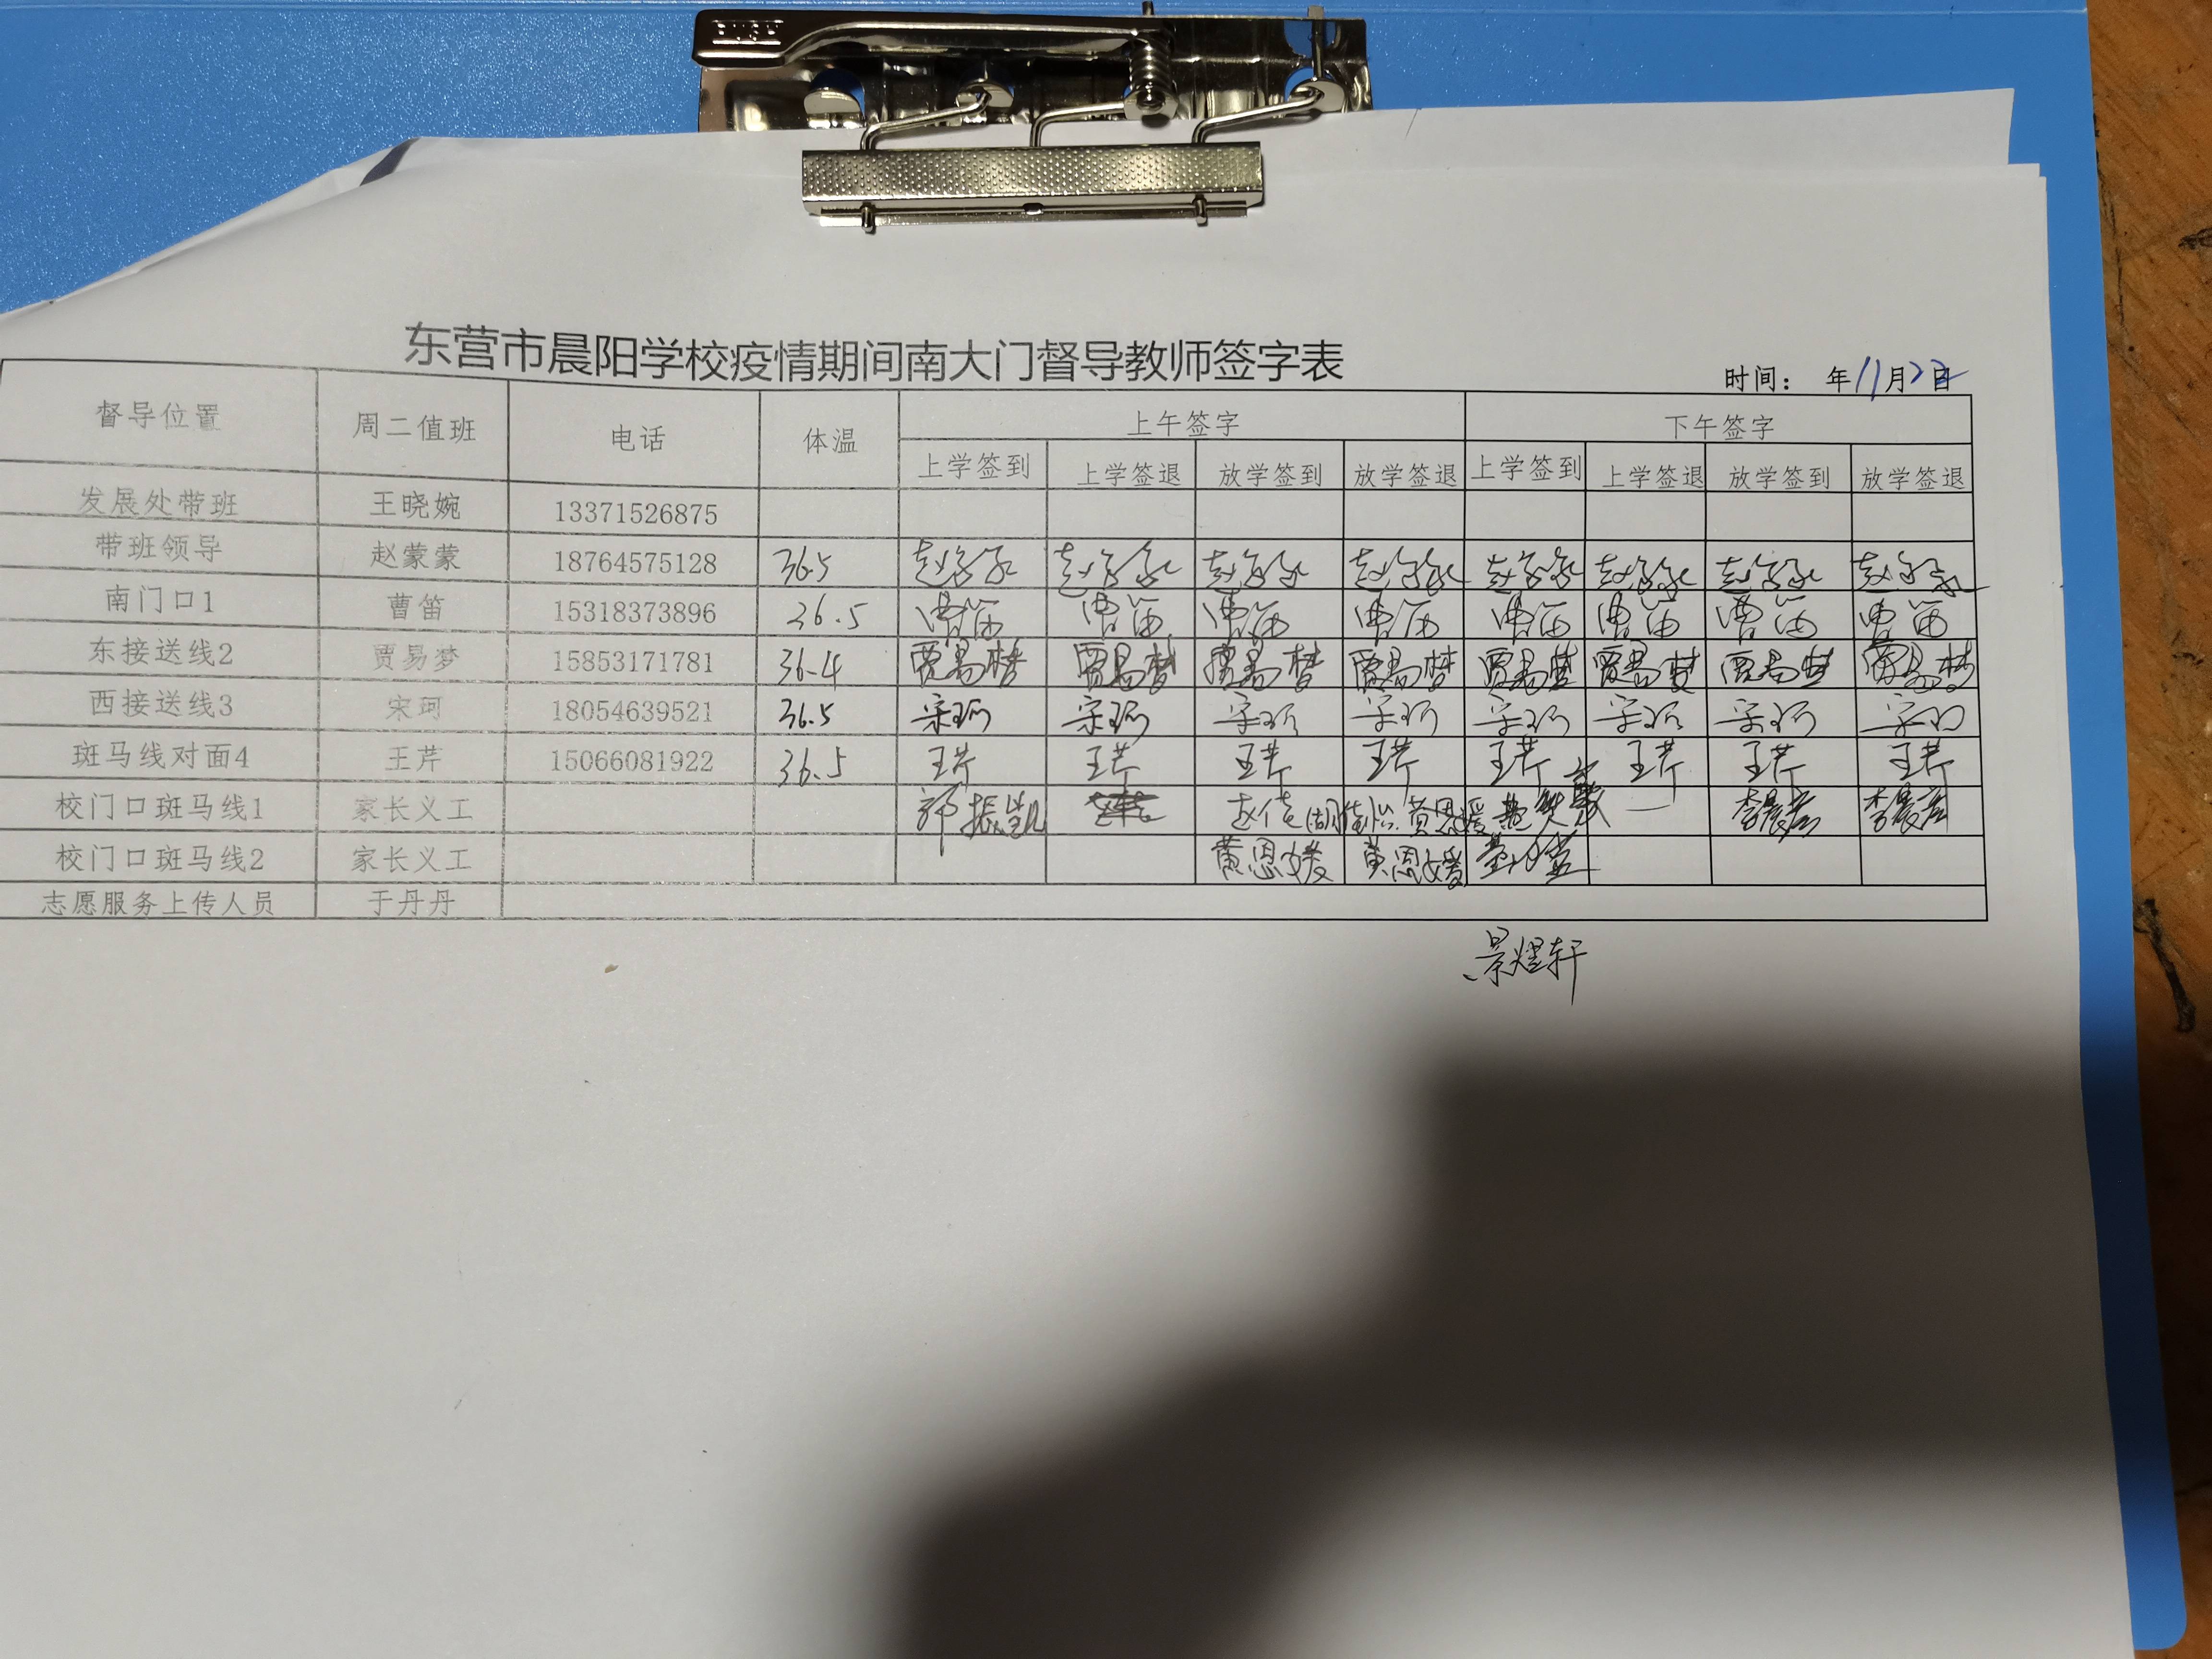 东营市晨阳学校疫情期间南大门督导教师签字表
时间： 年11月22日
督导位置 周二值班 电话 体温 上午签字 下午签字
上学签到 上学签退 放学签到 放学签退 上学签到 上学签退 放学签到 放学签退
发展处带班 王晓婉 13371526875
带班领导 赵蒙蒙 18764575128 36.5 赵蒙蒙 赵蒙蒙 赵蒙蒙 赵蒙蒙 赵蒙蒙 赵蒙蒙 赵蒙蒙 赵蒙蒙
南门口1 曹笛 15318373896 36.5 曹笛 曹笛 曹笛 曹笛 曹笛 曹笛 曹笛 曹笛
东接送线2 贾易梦 15853171781 36.4 贾易梦 贾易梦 贾易梦 贾易梦 贾易梦 贾易梦 贾易梦 贾易梦
西接送线3 宋珂 18054639521 36.5 宋珂 宋珂 宋珂 宋珂 宋珂 宋珂 宋珂 宋珂
斑马线对面4 王芹 15066081922 36.5 王芹 王芹 王芹 王芹 王芹 王芹 王芹 王芹
校门口斑马线1 家长义工 郭振凯 黄恩媛
校门口斑马线2 家长义工 黄恩媛 黄恩媛
志愿服务上传人员 于丹丹
景煜轩